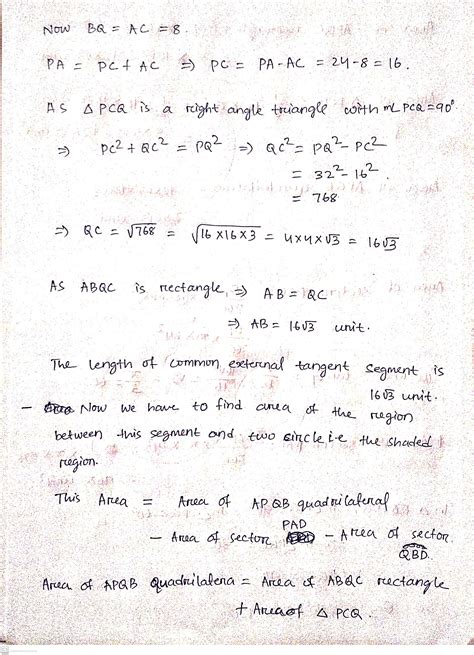 NOW BQ = AC = 8.
PA = PC + AC ⇒ PC = PA - AC = 24 - 8 = 16.
AS △PCQ is a right angle triangle with mLPCQ = 90°
⇒ PC² + QC² = PQ² ⇒ QC² = PQ² - PC²
= 32² - 16².
= 768
⇒ QC = √768 = √16×16×3 = 4×4×√3 = 16√3
AS ABQC is rectangle ⇒ AB = QC
⇒ AB = 16√3 unit.
The length of common external tangent segment is
16√3 unit.
- Now we have to find area of the region
between this segment and two circle i.e the shaded
region.
This Area = Area of APQB quadrilateral
- Area of sector PAD - Area of sector
QBD.
Area of APQB Quadrilatera = Area of ABQC rectangle
+ Area of △PCQ.